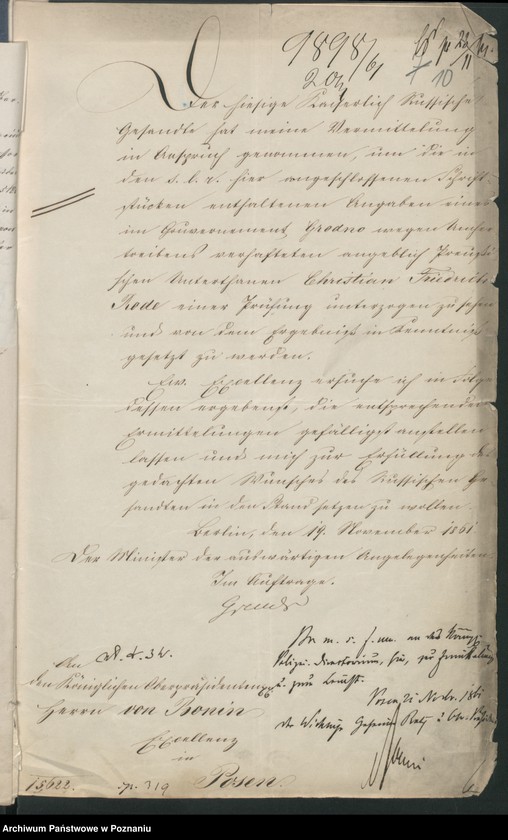 9898/61
20/11
10
Der hiesige Kaiserlich Russische
Gesandte hat meine Vermittelung
in Anspruch genommen, um die in
den s. l. r. hier angeschlossenen Schrift-
stücken enthaltenen Angaben eines
im Gouvernement Grodno wegen Umher-
treibens verhafteten angeblich Preußi-
schen Unterthanen Christian Friedrich
Rode einer Prüfung unterzogen zu sehen
und von dem Ergebniß in Kenntniß
gesetzt zu werden.
Ew. Excellenz ersuche ich in Folge
dessen ergebenst, die entsprechenden
Ermittelungen gefälligst anstellen
lassen und mich zur Erfüllung des
gedachten Wunsches des Russischen Ge-
sandten in den Stand setzen zu wollen.
Berlin, den 19. November 1861
Der Minister der auswärtigen Angelegenheiten.
Im Auftrage.
An
den Königlichen Oberpräsidenten
Herrn von Bonin
Excellenz
in
Posen.
an das Königl.
Polizei-Directorium, hier, zur
Posen, Novbr. 1861
Der Wirkliche Geheime Rath u. Ober-Präsident
15622.
Archiwum Państwowe w Poznaniu